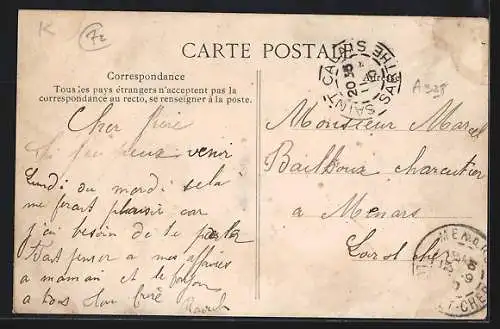 K
72
CARTE POSTALE
A338
Correspondance
Tous les pays étrangers n'acceptent pas la
correspondance au recto, se renseigner à la poste.
SAINT-CALAIS SARTHE
Cher frère
Si tu peux venir
Lundi ou mardi sela
me ferait plaisir car
j'ai besoin de te parler
Fait penser a mes affaires
a maman et le
a tous ton frère
Raoul
Monsieur Marcel
Bailhoux charcutier
a Menars
Loir et cher
MENARS